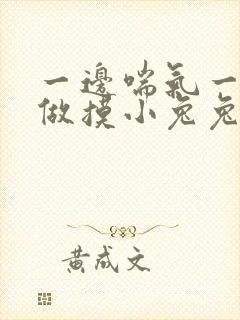 一邊喘氣一
做摸小兔兔
黃成文